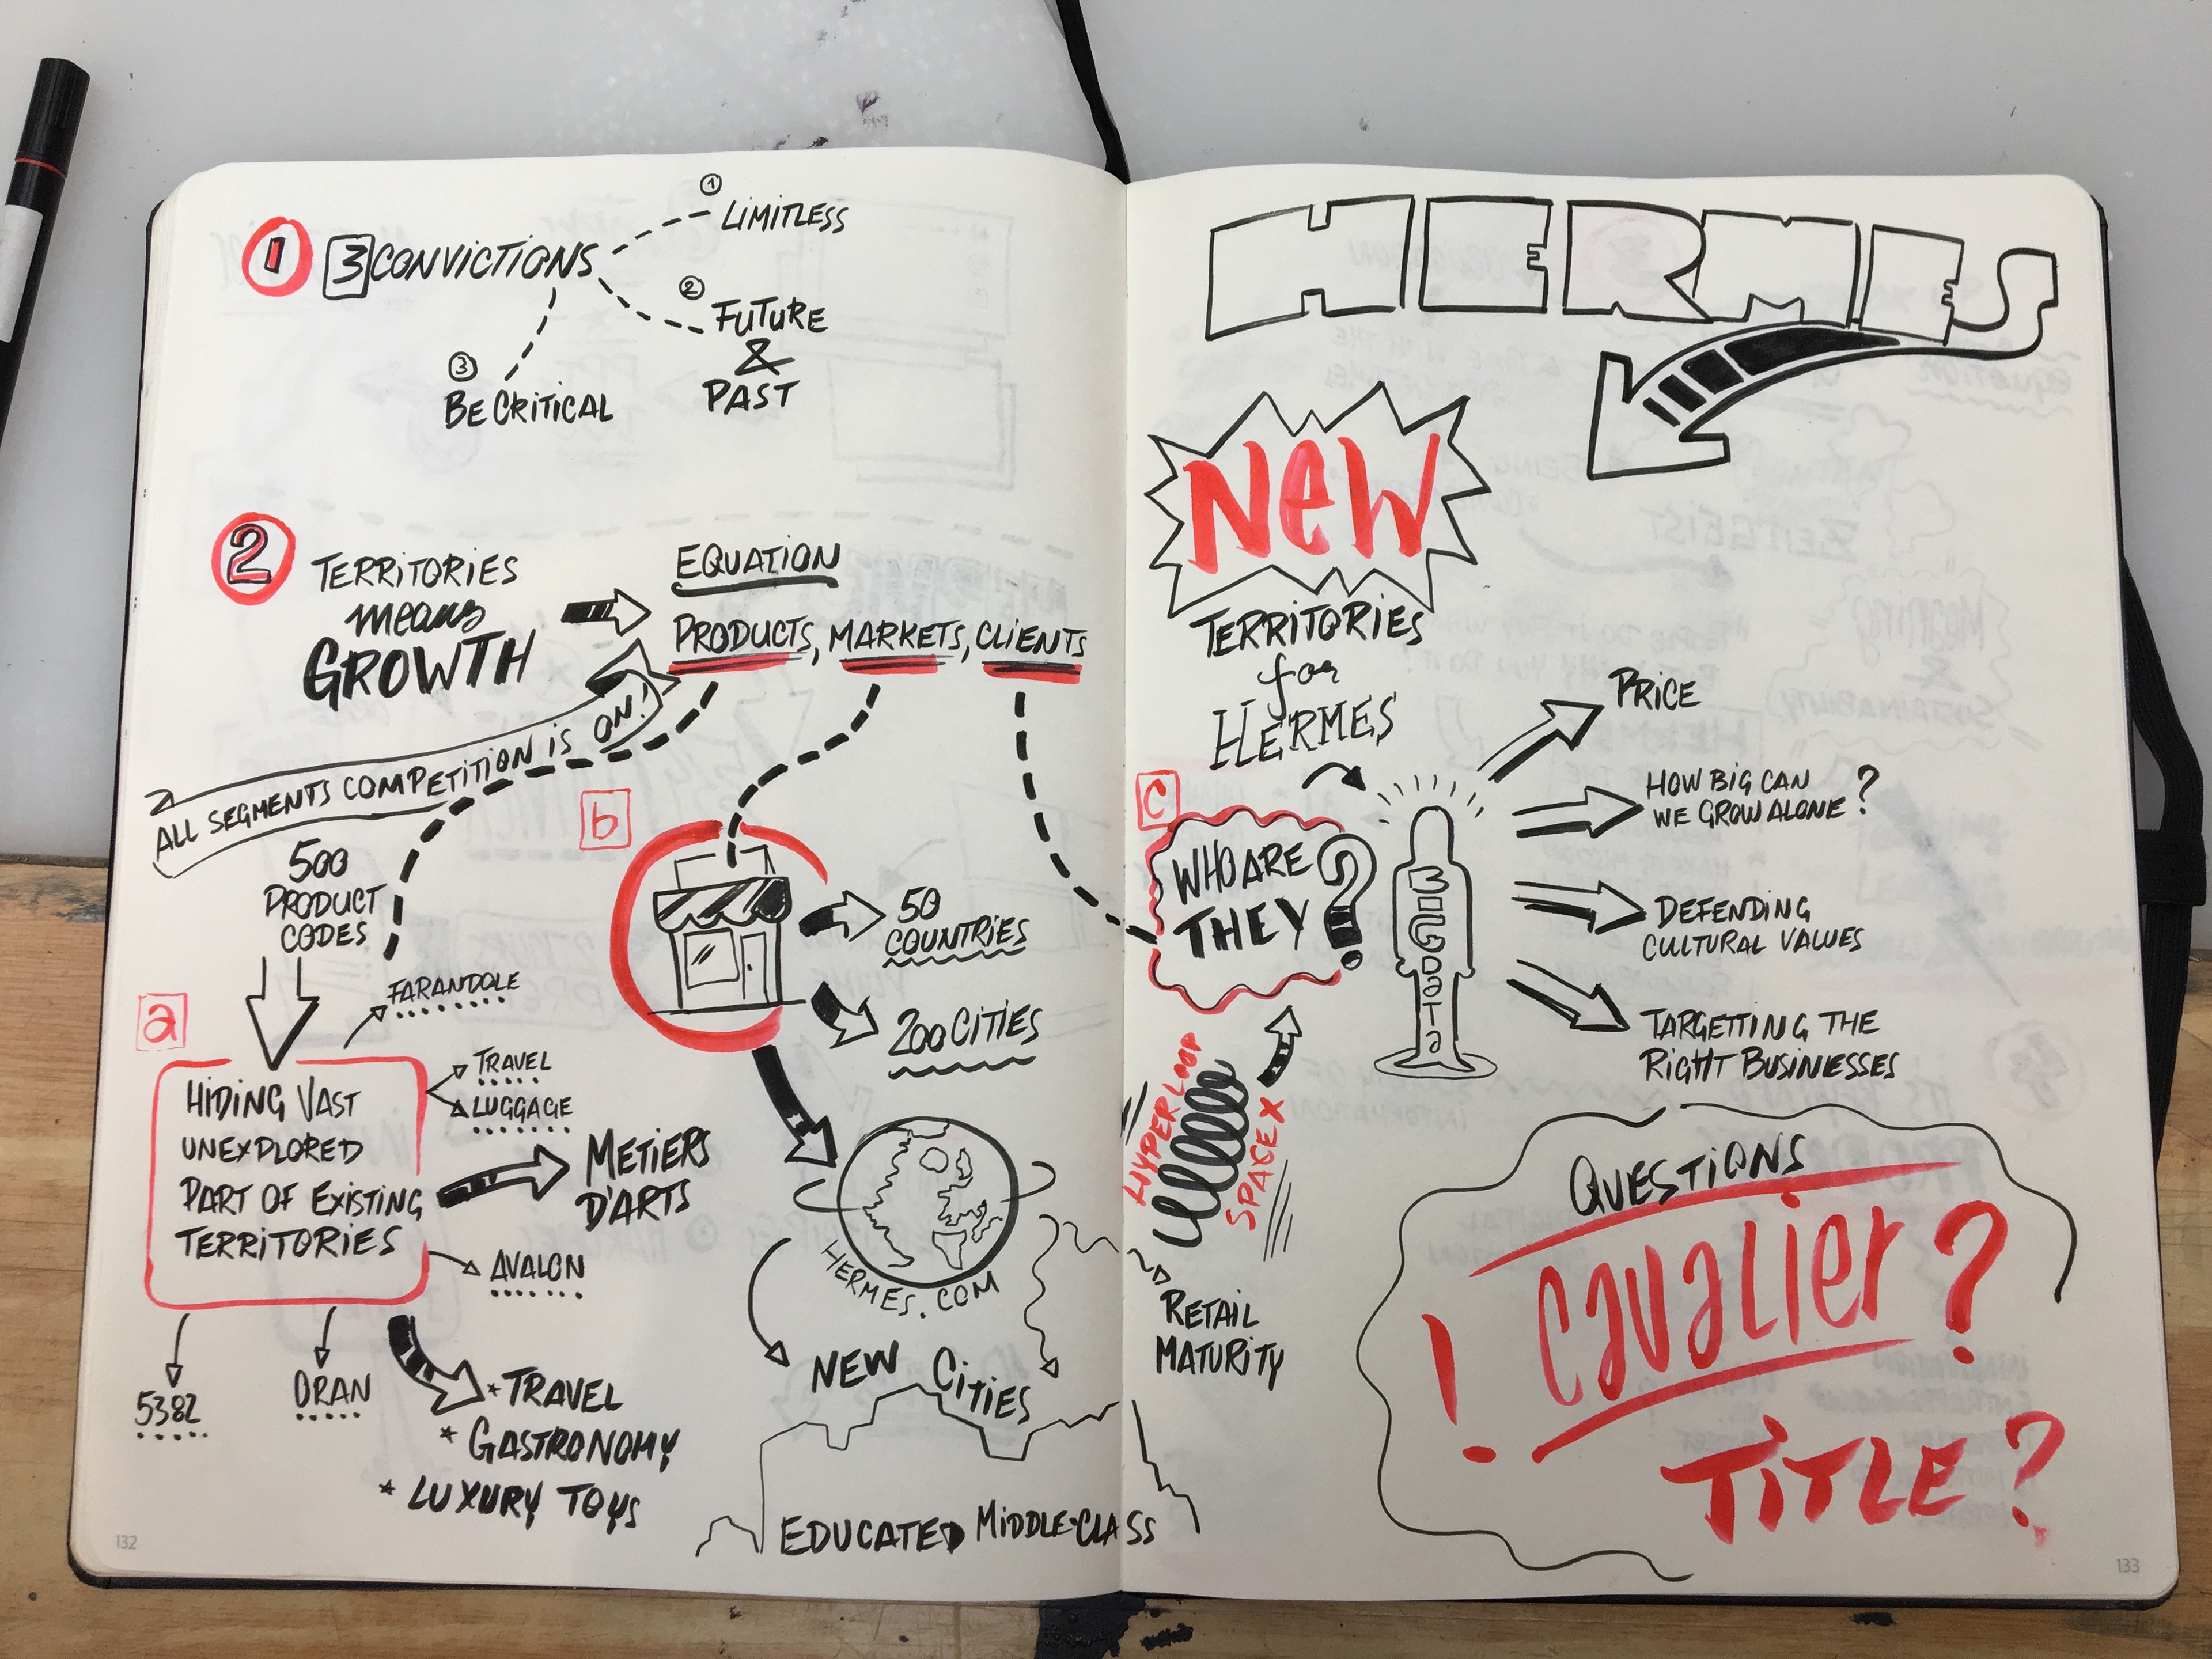 1
3 CONVICTIONS
1
LIMITLESS
2
FUTURE
&
PAST
3
BE CRITICAL
2
TERRITORIES
means
GROWTH
EQUATION
PRODUCTS, MARKETS, CLIENTS
ALL SEGMENTS COMPETITION IS ON!
500
PRODUCT
CODES
a
HIDING VAST
UNEXPLORED
PART OF EXISTING
TERRITORIES
FARANDOLE
TRAVEL
LUGGAGE
METIERS
D'ARTS
AVALON
5382
ORAN
* TRAVEL
* GASTRONOMY
* LUXURY TOYS
b
50
COUNTRIES
200 CITIES
HERMES.COM
NEW CITIES
EDUCATED MIDDLE-CLASS
132
HERMES
NEW
TERRITORIES
for
HERMES
C
WHO ARE
THEY ?
BIG DATA
PRICE
HOW BIG CAN
WE GROW ALONE ?
DEFENDING
CULTURAL VALUES
TARGETTING THE
RIGHT BUSINESSES
HYPERLOOP
SPACEX
RETAIL
MATURITY
QUESTIONS
! Cavalier ?
TITLE ?
133